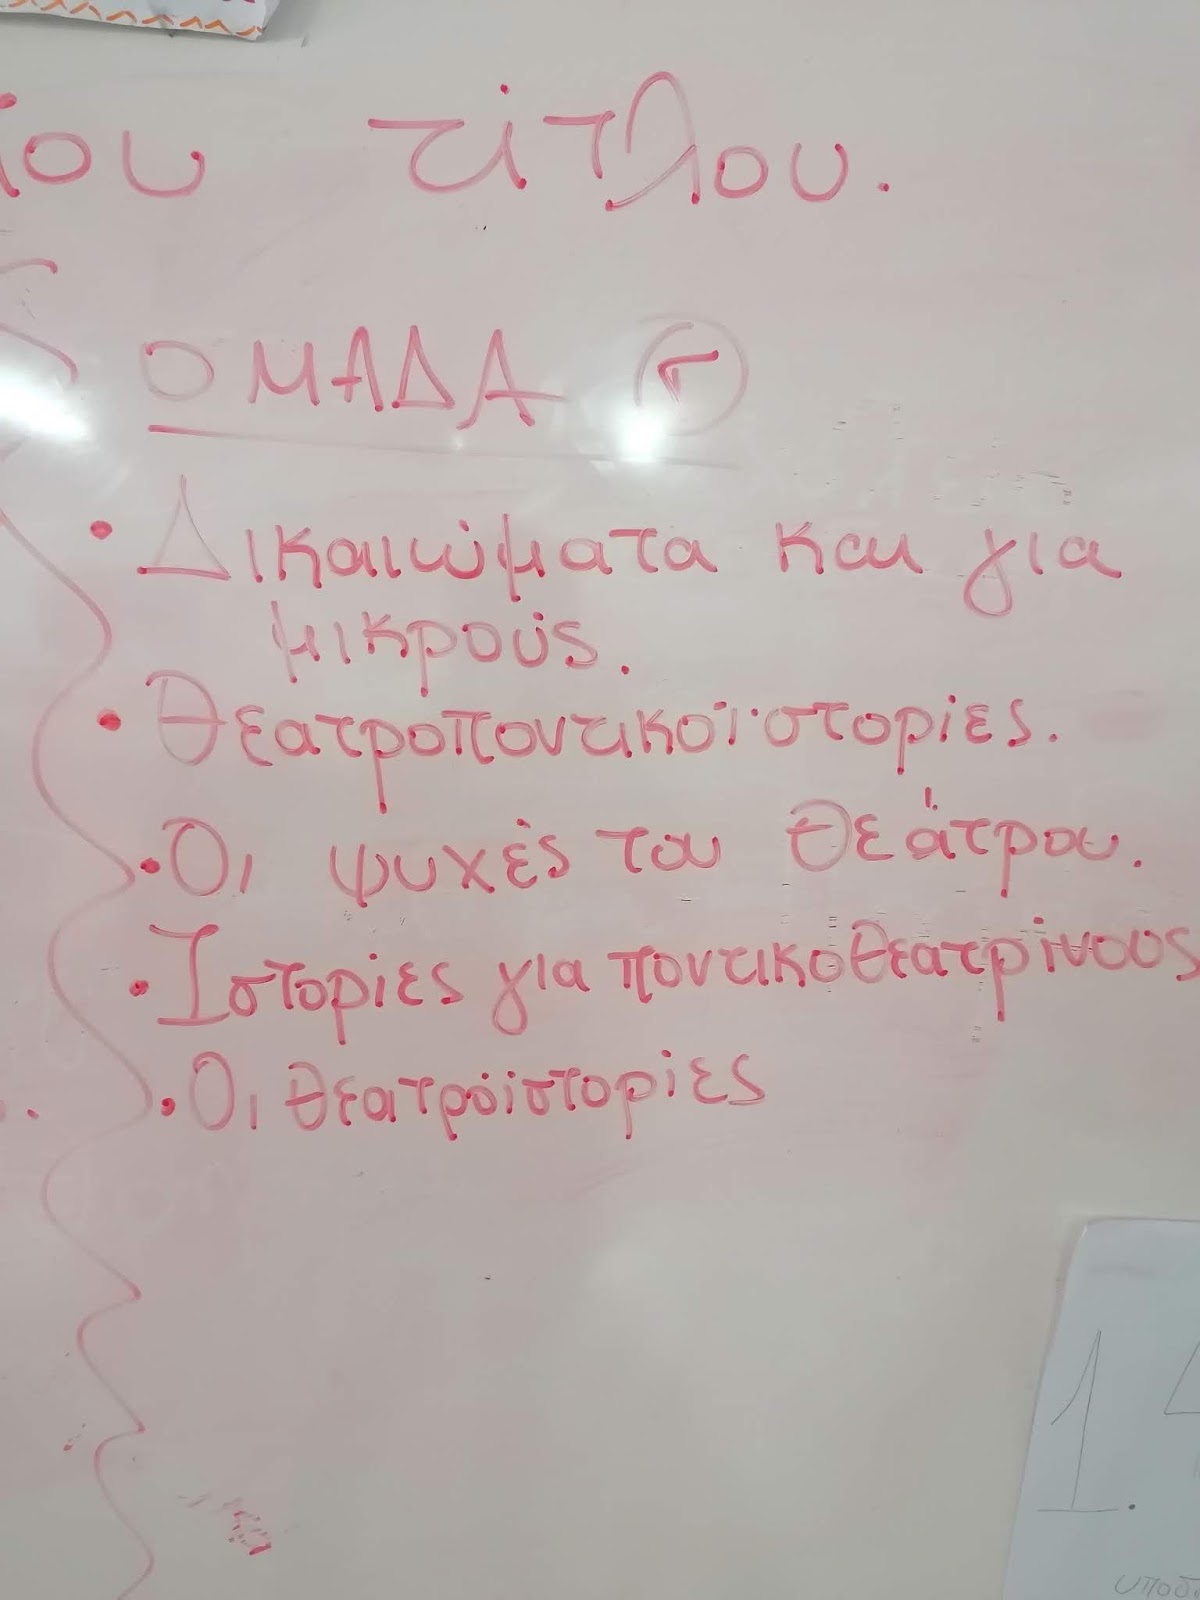 τίτλου.
ΟΜΑΔΑ Γ
• Δικαιώματα και για
μικρούς.
• Θεατροποντικοϊστορίες.
• Οι ψυχές του θεάτρου.
• Ιστορίες για ποντικοθεατρίνους
• Οι θεατροϊστορίες
1.